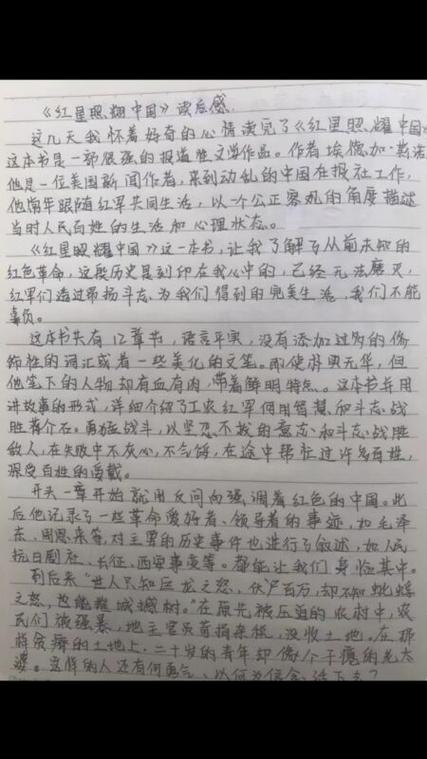 《红星照耀中国》读后感.
这几天我怀着好奇的心情读完了《红星照耀中国》
这本书是一部很强的报道性文学作品。作者埃德加·斯诺
他是一位美国新闻作者,来到动乱的中国在报社工作,
他常年跟随红军共同生活,以一个公正客观的角度描述
当时人民百姓的生活和心理状态。
《红星照耀中国》这一本书,让我了解了从前未知的
红色革命,这段历史是刻印在我心中的,已经无法磨灭,
红军们透过昂扬斗志、为我们得到的完美生活,我们不能
辜负。
这本书共有12章节,语言平实,没有添加过多的修
饰性的词汇或者一些美化的文笔。即使朴实无华,但
他笔下的人物却有血有肉,带着鲜明特点。这本书并用
讲故事的形式,详细介绍了工农红军何用智慧和斗志战
胜蒋介石。勇猛战斗,以坚忍不拔的意志和斗志战胜
敌人,在失败中不灰心,不气馁,在途中帮忙过许多百姓,
深受百姓的爱戴。
开头一章开始就用反问向强调着红色的中国。此
后他记录了一些革命爱好者、领导者的事迹,如毛泽
东、周恩来等,对主要的历史事件也进行了叙述,如人民
抗日剧社、长征、西安事变等。都能让我们身临其中。
到后来“世人只知巨龙之怒,伏尸百万,却不知蚍蜉
之怒,也能摧城撼树。”在原先被压迫的农村中,农
民们被强暴,地主官员苛捐杂税,没收土地。在那
样贫瘠的土地上,二十岁的青年却像个干瘪的老太
婆。这样的人还有何勇气、以何为信念、活下去?